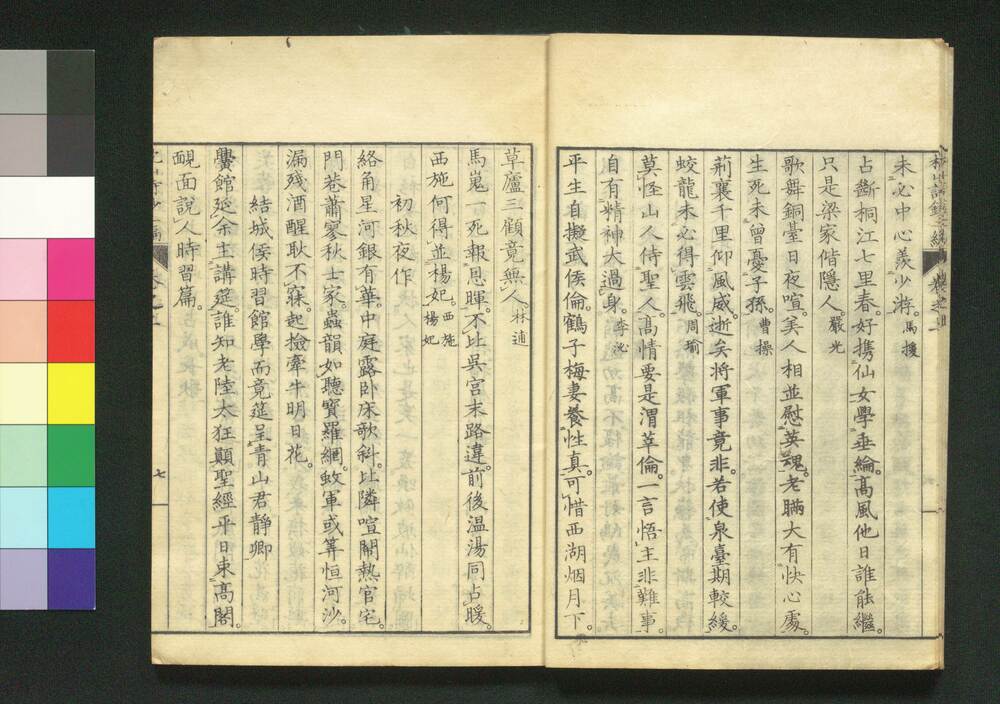 未必中心羨少游。馬援
占斷桐江七里春。好攜仙女學垂綸。高風他日誰能繼。
只是梁家偕隱人。嚴光
歌舞銅臺日夜喧。美人相並慰英魂。老瞞大有快心處。
生死未曾憂子孫。曹操
荊襄千里仰風威。逝矣將軍事竟非。若使泉臺期較緩。
蛟龍未必得雲飛。周瑜
莫怪山人侍聖人。高情要是渭莘倫。一言悟主非難事。
自有精神大過身。李泌
平生自擬武侯倫。鶴子梅妻養性真。可惜西湖烟月下。
草廬三顧竟無人。林逋
馬嵬一死報恩暉。不比吳宮末路違。前後溫湯同占暖。
西施何得並楊妃。西施楊妃
初秋夜作
絡角星河銀有華。中庭露臥床欹斜。比隣喧鬧熱官宅。
門巷蕭寥秋士家。蟲韻如聽寶羅網。蚊軍或筭恒河沙。
漏殘酒醒耿不寐。起撿牽牛明日花。
結城侯時習館學而竟筵呈青山君靜卿
黌館延余主講筵。誰知老陸太狂顛。聖經平日束高閣。
靦面說人時習篇。
七